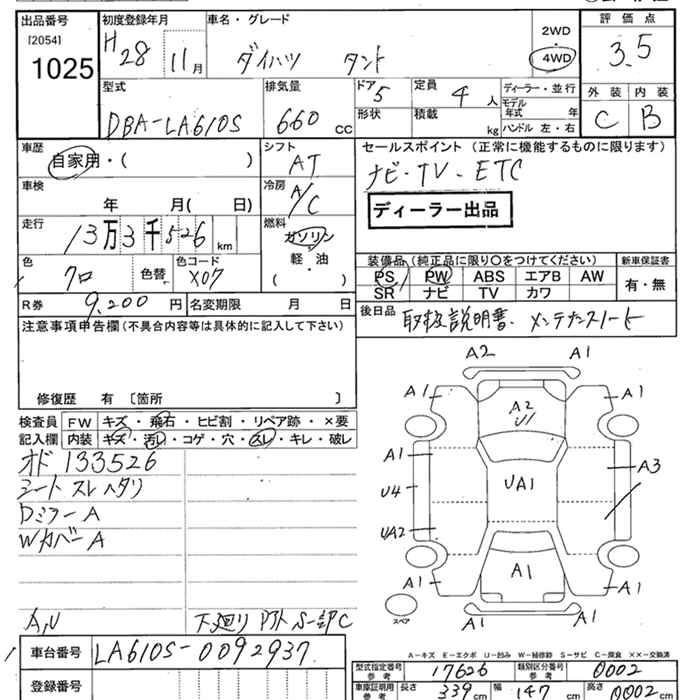 出品番号
[2054]
1025
初度登録年月
H28 11月
車名・グレード
ダイハツ タント
2WD
・
4WD
評価点
3.5
外装 内装
C B
型式
DBA-LA610S
排気量
660 cc
ドア
5
形状
定員
4 人
積載
kg
ディーラー・並行
モデル年式 年
ハンドル 左・右
車歴
自家用・( )
シフト
AT
車検
年 月( 日)
冷房
A/C
走行
13万3千526 km
燃料
ガソリン
軽・油
( ・ )
色
クロ
色替
色コード
X07
R券 9,200 円
名変期限 月 日
セールスポイント (正常に機能するものに限ります)
ナビ・TV・ETC
ディーラー出品
装備品 (純正品に限り○をつけてください)
新車保証書
PS PW ABS エアB AW
SR ナビ TV カワ
有・無
後日品 取扱説明書・メンテナンスノート
注意事項申告欄(不具合内容等は具体的に記入して下さい)
修復歴 有 〔箇所 〕
検査員記入欄
FW キズ・飛石・ヒビ割・リペア跡・×要
内装 キズ・汚レ・コゲ・穴・スレ・キレ・破レ
オド 133526
シート スレ ヘタリ
Dミラー A
Wカバー A
A,U
下廻り
C
A2 A1
A1 A1
A2
U1
A1 A3
U4 UA1
UA2
A1
A1 A1
A1 A1
スペア
車台番号 LA610S-0092937
登録番号
A-キズ E-エクボ U-凹み W-補修跡 S-サビ C-腐食 XX-交換済
型式指定番号 参考 17626
類別区分番号 参考 0002
車庫証明用 参考
長さ 339 cm
幅 147 cm
高さ 0002 cm